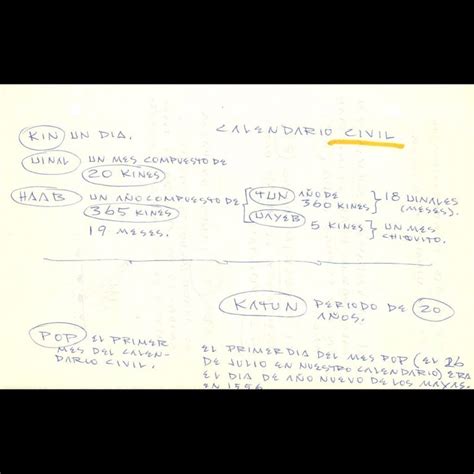 CALENDARIO CIVIL
KIN UN DIA.
UINAL UN MES COMPUESTO DE
20 KINES
HAAB UN AÑO COMPUESTO DE
365 KINES
19 MESES.
TUN AÑO DE
360 KINES
18 UINALES
(MESES).
UAYEB 5 KINES
UN MES
CHIQUITO.
KATUN PERIODO DE 20
AÑOS.
POP EL PRIMER
MES DEL CALEN-
DARIO CIVIL.
EL PRIMER DIA DEL MES POP (EL 26
DE JULIO EN NUESTRO CALENDARIO) ERA
EL DIA DE AÑO NUEVO DE LOS MAYAS
EN 1556